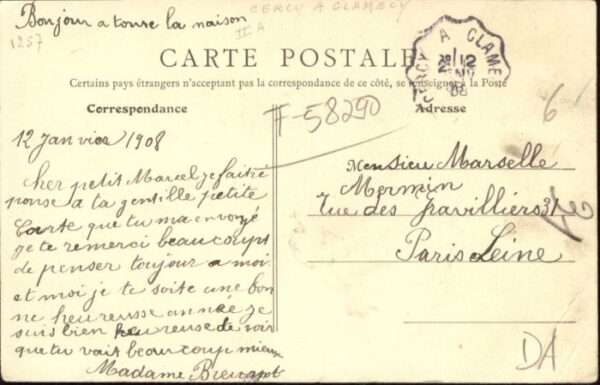 Bonjour a toure la naison
CERCY A CLAMECY
II A
1257
CARTE POSTALE
Certains pays étrangers n'acceptent pas la correspondance de ce côté, se renseigner à la Poste
Correspondance
Adresse
F-58290
6
12 Janvier 1908
Cher petit Marcel je fait ré
ponse a ta gentille petite
Carte que tu ma envoyé
je te remerci beaucoupt
de penser toujour a moi
et moi je te soite une bon
ne heureusse année je
suis bien heureuse de voir
que tu vait beaucoup mieux
Madame
Monsieu Marselle
Mermin
rue des gravilliers 31
Paris Seine
DA